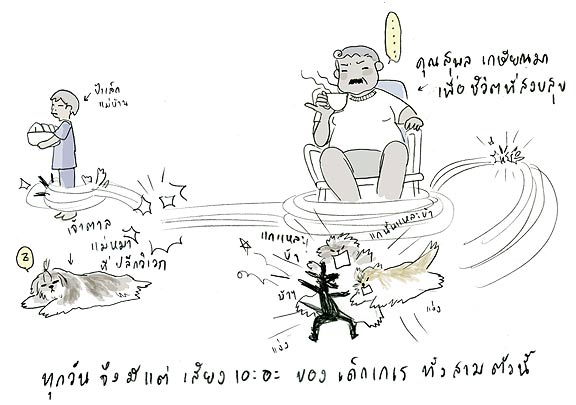 คุณสุพล เกษียณมา
เพื่อ ชีวิตที่สงบสุข
ป้าเล็ก
แม่บ้าน
เจ้าตาล
แม่หมา
ที่ ปลีกวิเวก
แกแหละ
บ้า
แกนั่นแหละบ้า
บ้าๆ
แง่ง
แง่ง
ทุกวัน จึง มีแต่ เสียง เอะอะ ของ เด็กเกเร ทั้ง สาม ตัวนี้